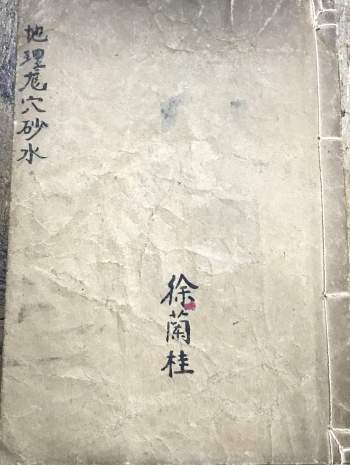 地理庬穴砂水
徐蘭桂